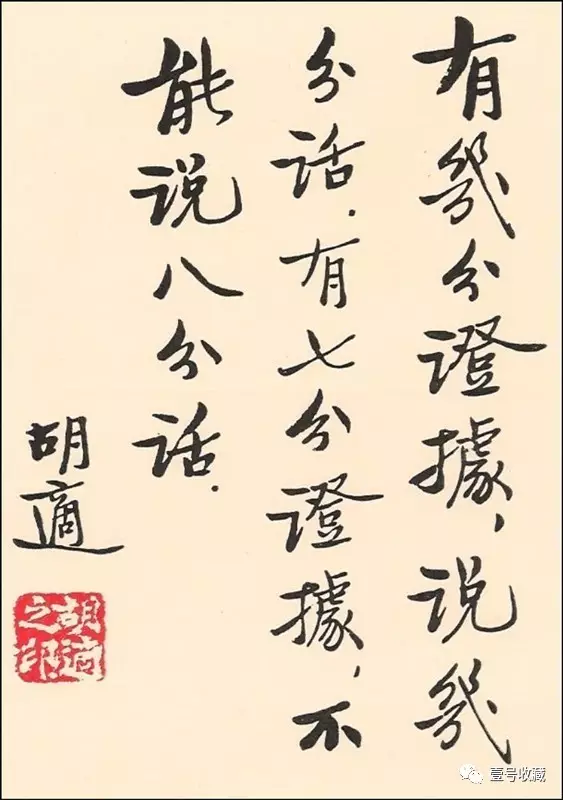 有幾分證據，说幾
分话．有七分證據，不
能说八分话．
胡適
胡適
之印
壹号收藏